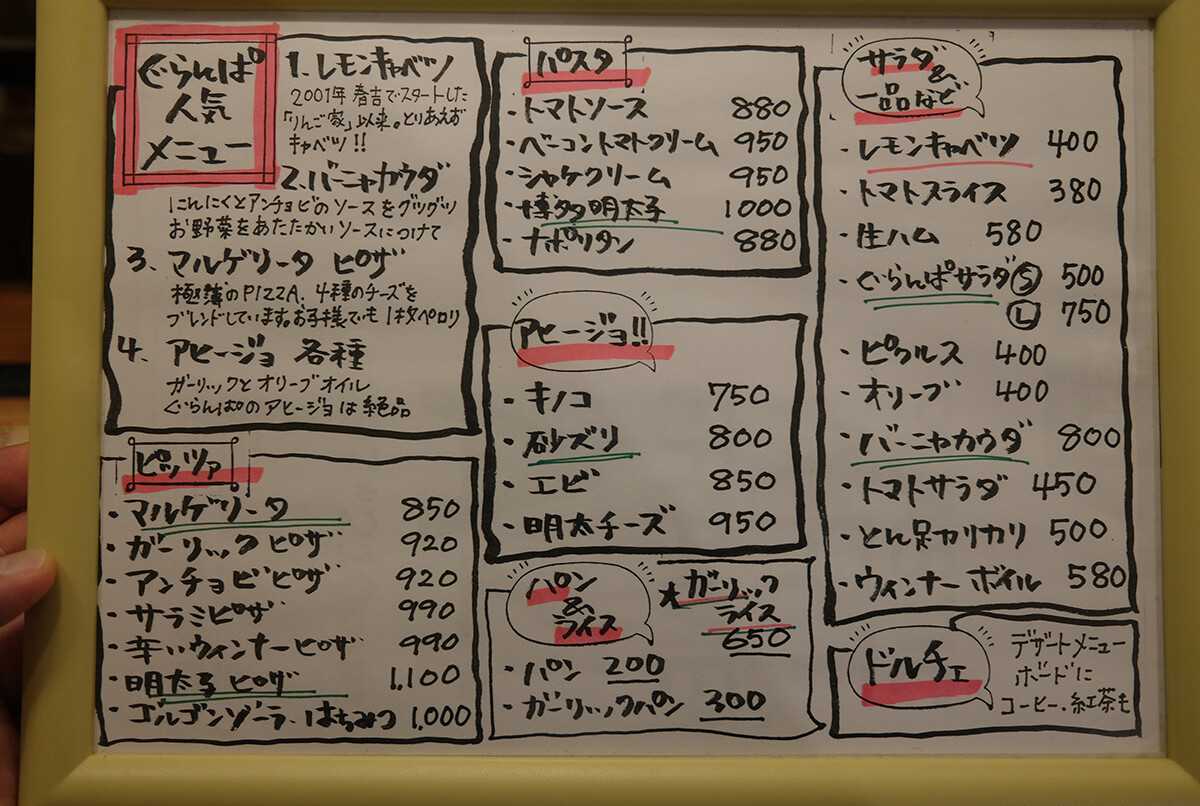 ぐらんぱ
人気
メニュー
1. レモンキャベツ
2001年 春吉でスタートした
「りんご家」以来。とりあえず
キャベツ!!
2. バーニャカウダ
にんにくとアンチョビのソースをグツグツ
お野菜をあたたかいソースにつけて
3、マルゲリータ ピザ
極薄のPIZZA、4種のチーズを
ブレンドしています。お子様でも1枚ペロリ
4、アヒージョ 各種
ガーリックとオリーブオイル
ぐらんぱのアヒージョは絶品
ピッツァ
・マルゲリータ 850
・ガーリックピザ 920
・アンチョビピザ 920
・サラミピザ 990
・辛いウィンナーピザ 990
・明太子ピザ 1,100
・ゴルゴンゾーラ・はちみつ 1,000
パスタ
・トマトソース 880
・ベーコントマトクリーム 950
・シャケクリーム 950
・博多明太子 1000
・ナポリタン 880
アヒージョ!!
・キノコ 750
・砂ズリ 800
・エビ 850
・明太チーズ 950
パン
&
ライス
★ガーリック
ライス
650
・パン 200
・ガーリックパン 300
サラダ&
一品など
・レモンキャベツ 400
・トマトスライス 380
・生ハム 580
・ぐらんぱサラダ Ⓢ 500
Ⓛ 750
・ピクルス 400
・オリーブ 400
・バーニャカウダ 800
・トマトサラダ 450
・とん足カリカリ 500
・ウィンナーボイル 580
ドルチェ
デザートメニュー
ボードに
コーヒー・紅茶も